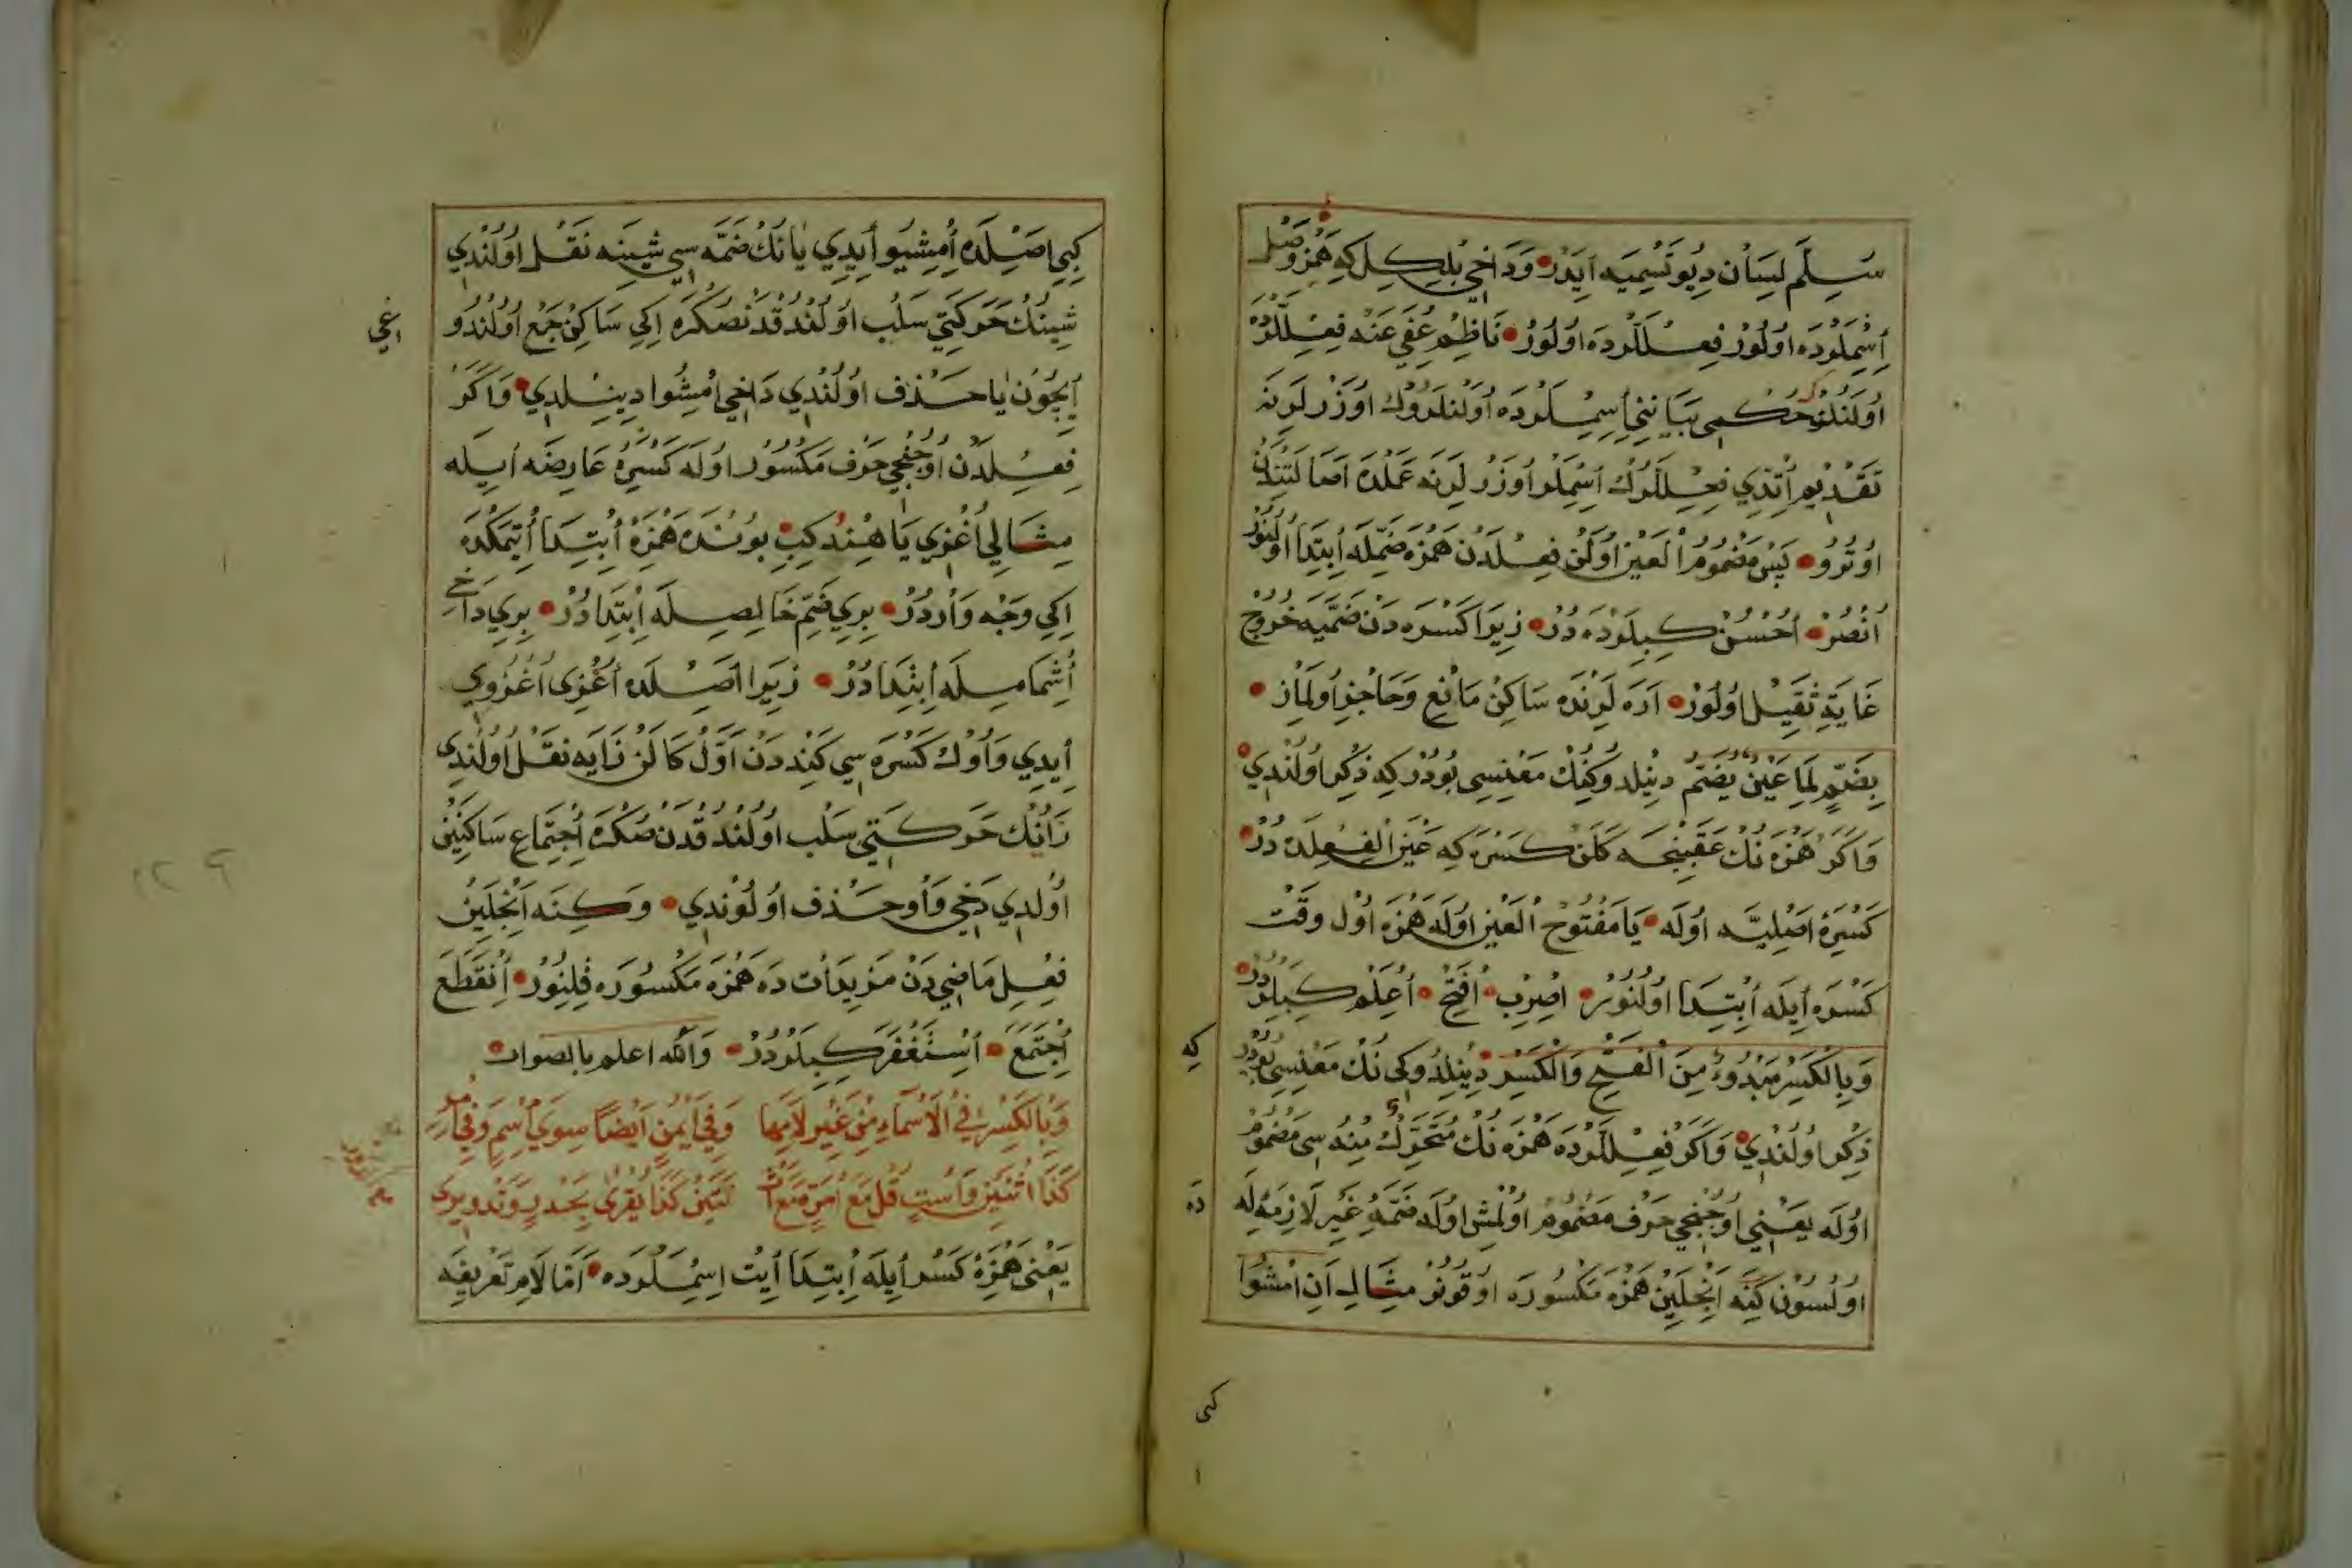 سُلَّمِ لِسَانْ دِيُو تَسْمِيَه اَيَدَرْ وَدَاخِي بُلِكِلْ كِه هَمْزَۀ وَصْل
اِسْمِلَرْدَه اُولُورْ فِعِلْلَرْدَه اُولُورْ نَاظِمْ عُفِيَ عَنْه فِعِلْلَرْدَه
اُولَنْلَرُڭْ حُكْمِي بَيَانِنِي اِسِمْلَرْدَه اُولَنْلَرُوڭْ اُوزَرْلَرِنَه
تَقْدِيم اِتْدِي فِعِلْلَرُڭْ اِسْمِلَرْ اُوزَرْلَرِنَه عَمَلْدَه اَصَالَتِنْدَنْ
اُوتُرُو پَسْ مَضْمُومُ الْعَيْنْ اُولَنْ فِعِلْدَنْ هَمْزَه ضَمِّلَه اِبْتِدَا اُولُنُورْ
اُنْصُرْ اُحْسُنْ كِبِيلَرْدَه دُرْ زِيرَا كَسْرَه دَنْ ضَمَّيَه خُرُوجْ
غَايَةِ ثَقِيلْ اُولُورْ اَرَه لَرِنْدَه سَاكِنْ مَانِع وَحَاجِزْ اُولْمَازْ
بِضَمٍّ لِمَا عَيْنٌ يُضَمُّ دِينِلْدُوكِنُڭْ مَعْنِيسِي بُودُرْ كِه ذِكْر اُولُنْدِي
وَاَكَرْ هَمْزَه نُڭْ عَقِبِنْجَه كَلَنْ كَسْرَه كِه عَيْنُ الْفِعِلْدَه دُرْ
كَسْرَۀ اَصْلِيَّه اُولَه يَا مَفْتُوحُ الْعَيْنْ اُولَه هَمْزَه اُولْ وَقْتْ
كَسْرَه اِيلَه اِبْتِدَا اُولُنُورْ اِضْرِبْ اِفْتَحْ اِعْلَمْ كِبِيلَرْدُرْ
وَبِالْكَسْرِ مَبْدُوءٌ مِنَ الْفَتْحِ وَالْكَسْرِ دِينِلْدُوكِي نُڭْ مَعْنِيسِي بُودُرْ كِه
ذِكْر اُولُنْدِي وَاَكَرْ فِعِلْلَرْدَه هَمْزَه نُڭْ مُتَحَرِّكِ مِنْهُ سِي مَضْمُومْ
اُولَه يَعْنِي اُوچُنْجِي حَرْف مَضْمُومْ اُولْمِشْ اُولَه ضَمَّۀ غَيْرِ لَازِمَه اِيلَه
اُولْسُونْ كِنَه اَنْجِلَيِنْ هَمْزَه مَكْسُورَه اُوقُونُرْ مِثَالِ اَنِ امْشُوا
كِبِي اَصِلْدَه اِمْشِيُوا اِيدِي يَا نُڭْ ضَمَّه سِي شِينِه نَقْل اُولُنْدِي
شِينُڭْ حَرَكَتِي سَلْب اُولُنْدُقْدَنْصُكْرَه اِكِي سَاكِنْ جَمْع اُولُنْدُو
اِيچُونْ يَا حَذْف اُولُنْدِي دَاخِي اِمْشُوا دِينِلْدِي وَاَكَرْ
فِعِلْدَنْ اُوچُنْجِي حَرْف مَكْسُورْ اُولَه كَسْرَۀ عَارِضَه اِيلَه
مِثَالِي اُغْزِي يَا هِنْدُ كِبِي بُونْدَه هَمْزَه اِبْتِدَا اِتْمَكْدَه
اِكِي وَجْه وَارْدُرْ بِرِي ضَمِّ خَالِصِيلَه اِبْتِدَادُرْ بِرِي دَاخِي
اِشْمَامِيلَه اِبْتِدَادُرْ زِيرَا اَصِلْدَه اُغْزِى اُغْزُوِي
اِيدِي وَاوُڭْ كَسْرَه سِي كَنْدِدَنْ اَوَّلْ كَالَنْ زَايَه نَقْل اُولُنْدِي
زَانُڭْ حَرَكَتِي سَلْب اُولُنْدُقْدَنْصُكْرَه اِجْتِمَاعِ سَاكِنَيْنْ
اُولْدِي دَخِي وَاو حَذْف اُولُونْدِي وَكِنَه اَنْجِلَيِنْ
فِعِلِ مَاضِي دَنْ مَزِيدَاتْ دَه هَمْزَه مَكْسُورَه قِلِنُورْ اِنْقَطَعَ
اِجْتَمَعَ اِسْتَغْفَرَ كِبِيلَرْدُرْ وَاللّٰه اعلم بالصواب
وَبِالْكَسْرِ فِي الْاَسْمَاءِ مِنْ غَيْرِ لَامِهَا وَفِي اَيْمُنٍ اَيْضًا سِوَى اسْمٍ وَفِي امْرِءٍ
كَذَا اثْنَيْنِ وَاسْتٍ قُلْ مَعَ امْرَةٍ مَعَ اثْنَتَيْنِ كَذَا يُقْرَى بِحَدْرٍ وَتَدْوِيرِى
يَعْنِي هَمْزَۀ كَسْر اِيلَه اِبْتِدَا اَيْتْ اِسِمْلَرْدَه اَمَّا لَامِ تَعْرِيفَه
اغي
كه
ده
كبى
١٢٩